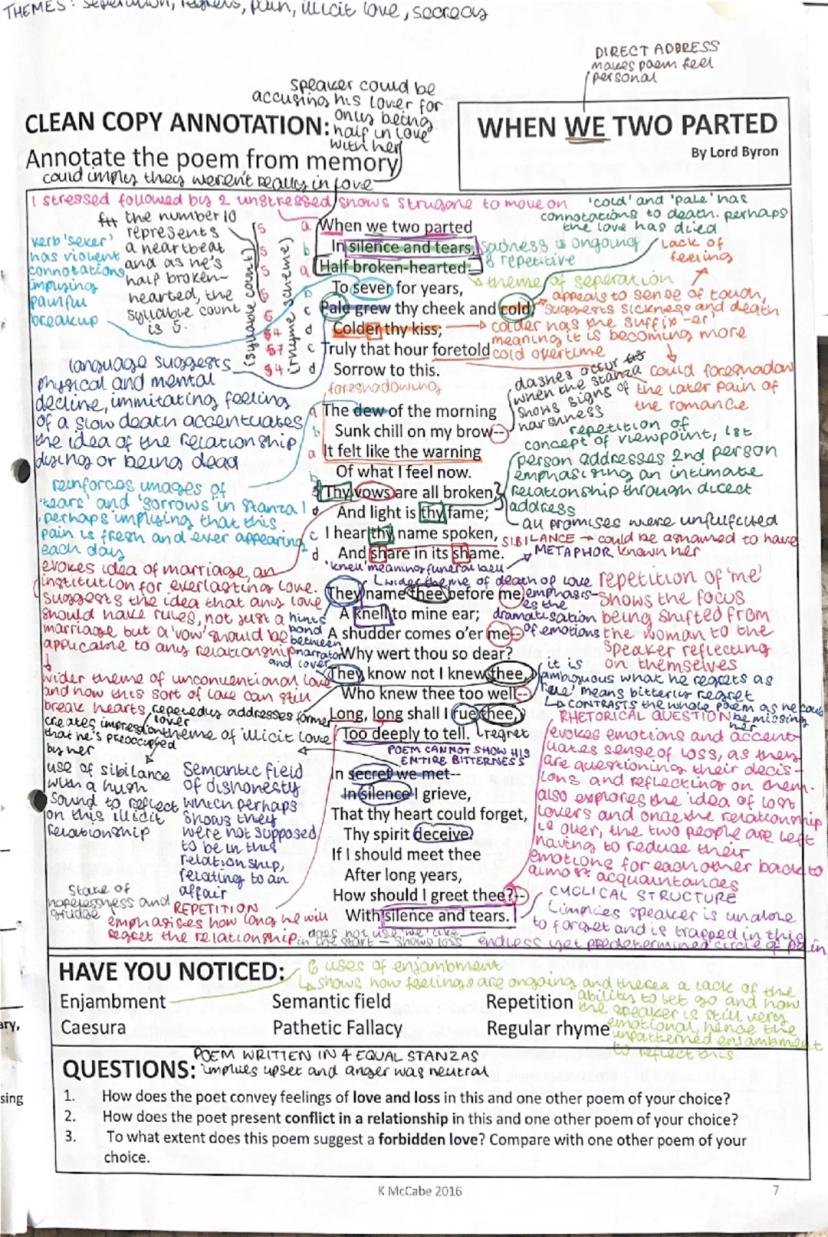 THEMES: seperation, regrets, pain, illicit love, secrecy
DIRECT ADDRESS
makes poem feel
personal
speaker could be
accusing his lover for
only being
half in love
with her
CLEAN COPY ANNOTATION:
Annotate the poem from memory
could imply they weren't really in love
WHEN WE TWO PARTED
By Lord Byron
1 stressed followed by 2 unstressed shows struggle to move on
'cold' and 'pale' has
connotations to death. perhaps
the love has died
the number 10
represents
a heartbeat
and as he's
half broken-
hearted, the
syllable count
is 5.
verb 'sever'
has violent
connotations
implying
painful
breakup
(syllable count)
5
5
5
6
(rhyme scheme)
a When we two parted
b In silence and tears,
a Half broken-hearted
b To sever for years,
c Pale grew thy cheek and cold,
d Colder thy kiss;
c Truly that hour foretold
d Sorrow to this.
sadness is ongoing
& repetitive
lack of
feeling
theme of seperation
appeals to sense of touch,
suggests sickness and death
colder has the suffix -er
meaning it is becoming more
cold overtime
could foreshadow
the later pain of
the romance
dashes occur
when the stanza
shows signs of
harshness
foreshadowing
language suggests
physical and mental
decline, immitating feeling
of a slow death accentuates
the idea of the relationship
dying or being dead
a The dew of the morning
b Sunk chill on my brow--
a It felt like the warning
b Of what I feel now.
Thy vows are all broken,
And light is thy fame;
c I hear thy name spoken,
d And share in its shame.
repetition of
concept of viewpoint, 1st
person addresses 2nd person
emphasising an intimate
relationship through direct
address
all promises were unfulfilled
SIBILANCE → could be ashamed to have
known her
METAPHOR
reinforces images of
'tears' and 'sorrows' in stanza 1
perhaps implying that this
pain is fresh and ever appearing
each day
evokes idea of marriage, an
institution for everlasting love.
suggests the idea that any love
should have rules, not just a
marriage but a 'vow' should be
applicable to any relationship
'knell' meaning funeral bell
wider theme of death of love
They name thee before me,
A knell to mine ear;
A shudder comes o'er me--
Why wert thou so dear?
They know not I knew thee,
Who knew thee too well--
Long, long shall I rue thee,
Too deeply to tell.
hints
bond
between
narrator
and lover
emphasis-
es the
dramatisation
of emotions
repetition of 'me'
shows the focus
being shifted from
the woman to the
speaker reflecting
on themselves
it is
ambiguous what he regrets as
'rue' means bitterly regret
CONTRASTS the whole poem as he could
be missing
her
regret
wider theme of unconventional love
and how this sort of love can still
break hearts
repeatedly addresses former
lover
creates impression
that he's preoccupied
by her
theme of illicit love
POEM CANNOT SHOW HIS
ENTIRE BITTERNESS
RHETORICAL QUESTION
evokes emotions and accent-
uates sense of loss, as they
are questioning their decis-
ions and reflecting on them.
also explores the idea of lost
lovers and once the relationship
is over, the two people are left
having to reduce their
emotions for each other back to
almost acquaintances
use of sibilance
with a hush
sound to reflect
on this illicit
relationship
Semantic field
of dishonesty
which perhaps
shows they
were not supposed
to be in this
relationship,
relating to an
affair
In secret we met--
In silence I grieve,
That thy heart could forget,
Thy spirit deceive.
If I should meet thee
After long years,
How should I greet thee?--
With silence and tears.
State of
hopelessness and
grudge
REPETITION
emphasises how long he will
regret the relationship
does not use 'we' like
in the start - shows loss
CYCLICAL STRUCTURE
implies speaker is unable
to forget and is trapped in this
endless yet predetermined circle of pain
HAVE YOU NOTICED:
6 uses of enjambment
shows how feelings are ongoing and theres a lack of the
ability to let go and how
the speaker is still very
emotional, hence the
unpatterned enjambment
to reflect this
Enjambment Semantic field Repetition
Caesura Pathetic Fallacy Regular rhyme
POEM WRITTEN IN 4 EQUAL STANZAS
implies upset and anger was neutral
QUESTIONS:
1. How does the poet convey feelings of love and loss in this and one other poem of your choice?
2. How does the poet present conflict in a relationship in this and one other poem of your choice?
3. To what extent does this poem suggest a forbidden love? Compare with one other poem of your
choice.
ary,
sing
K McCabe 2016
7